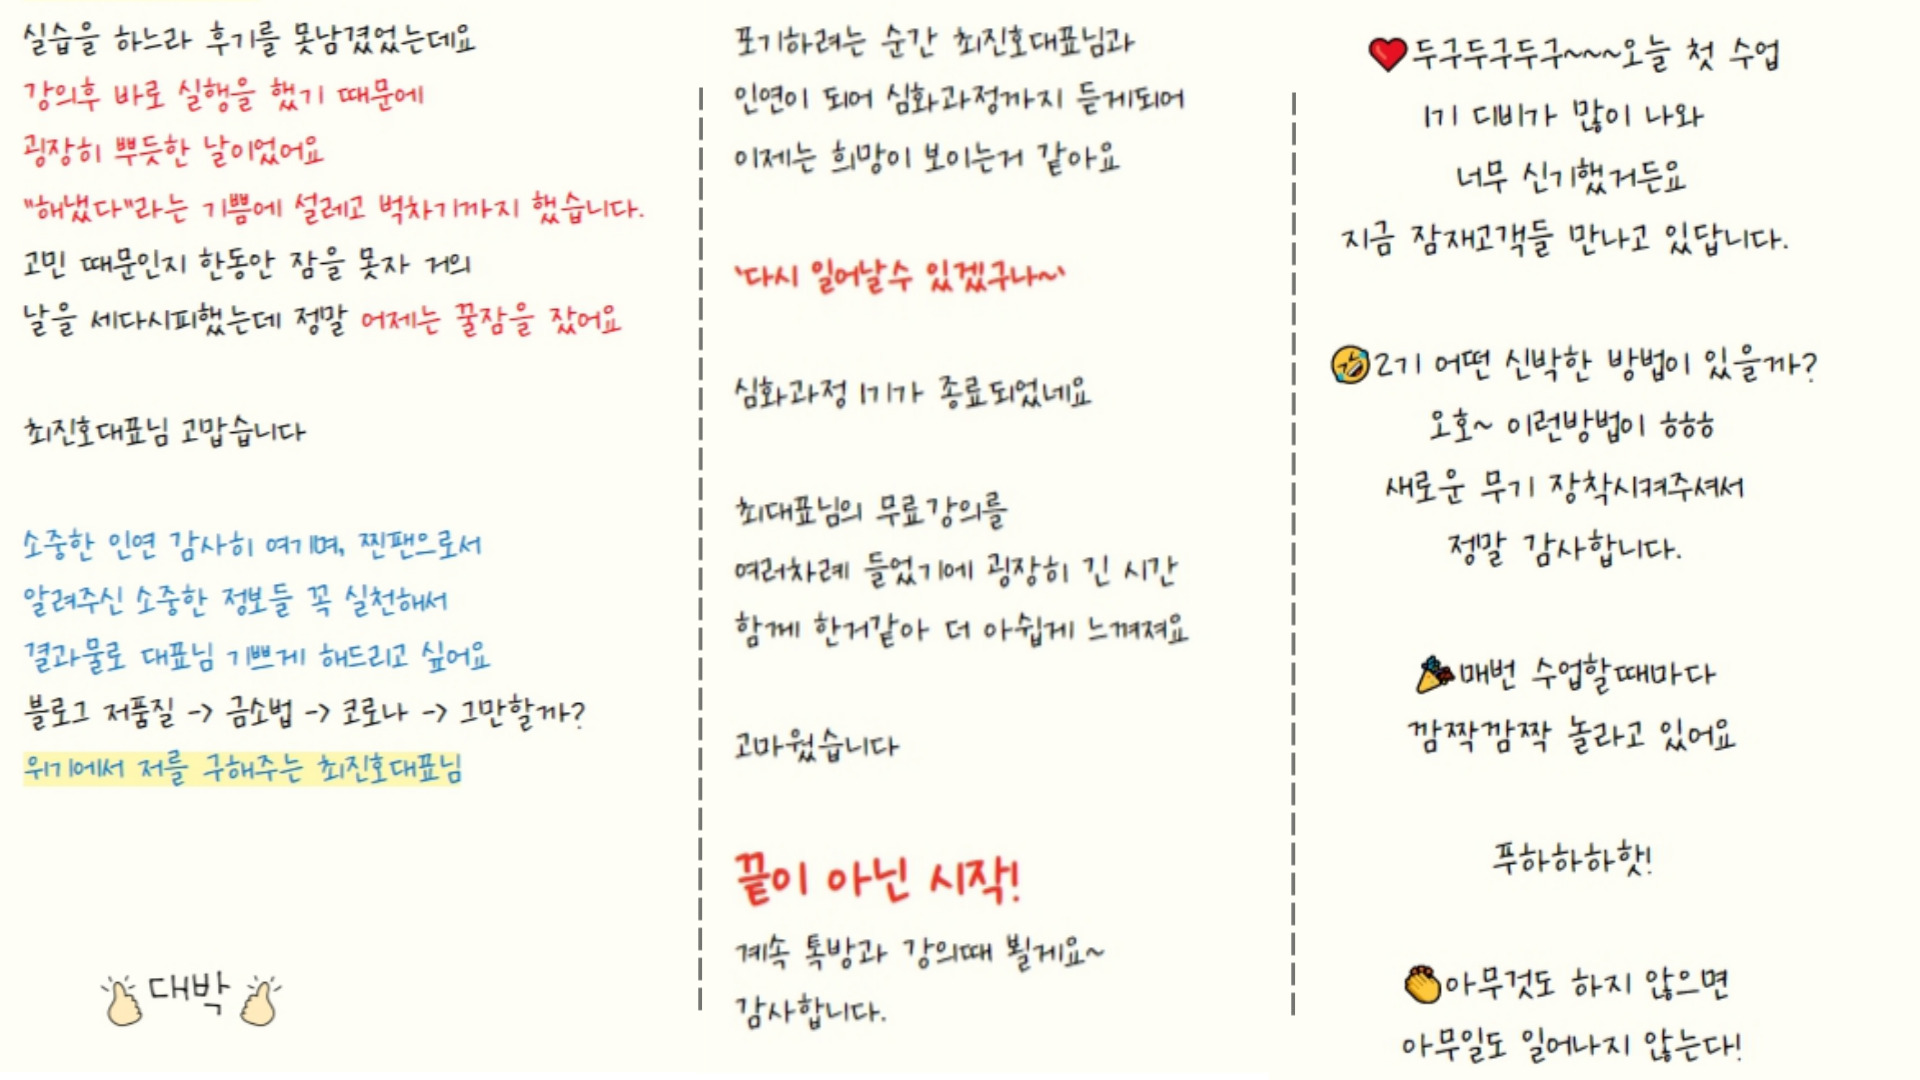 실습을 하느라 후기를 못남겼었는데요
강의후 바로 실행을 했기 때문에
굉장히 뿌듯한 날이었어요
"해냈다"라는 기쁨에 설레고 벅차기까지 했습니다.
고민 때문인지 한동안 잠을 못자 거의
날을 세다시피했는데 정말 어제는 꿀잠을 잤어요
최진호대표님 고맙습니다
소중한 인연 감사히 여기며, 찐팬으로서
알려주신 소중한 정보들 꼭 실천해서
결과물로 대표님 기쁘게 해드리고 싶어요
블로그 저품질 -> 금소법 -> 코로나 -> 그만할까?
위기에서 저를 구해주는 최진호대표님
대박
포기하려는 순간 최진호대표님과
인연이 되어 심화과정까지 듣게되어
이제는 희망이 보이는거 같아요
'다시 일어날수 있겠구나~'
심화과정 1기가 종료되었네요
최대표님의 무료강의를
여러차례 들었기에 굉장히 긴 시간
함께 한거같아 더 아쉽게 느껴져요
고마웠습니다
끝이 아닌 시작!
계속 톡방과 강의때 뵐게요~
감사합니다.
❤️두구두구두구~~~오늘 첫 수업
1기 디비가 많이 나와
너무 신기했거든요
지금 잠재고객들 만나고 있답니다.
🤣2기 어떤 신박한 방법이 있을까?
오호~ 이런방법이 ㅎㅎㅎ
새로운 무기 장착시켜주셔서
정말 감사합니다.
🎉매번 수업할때마다
깜짝깜짝 놀라고 있어요
푸하하하핫!
👏아무것도 하지 않으면
아무일도 일어나지 않는다!